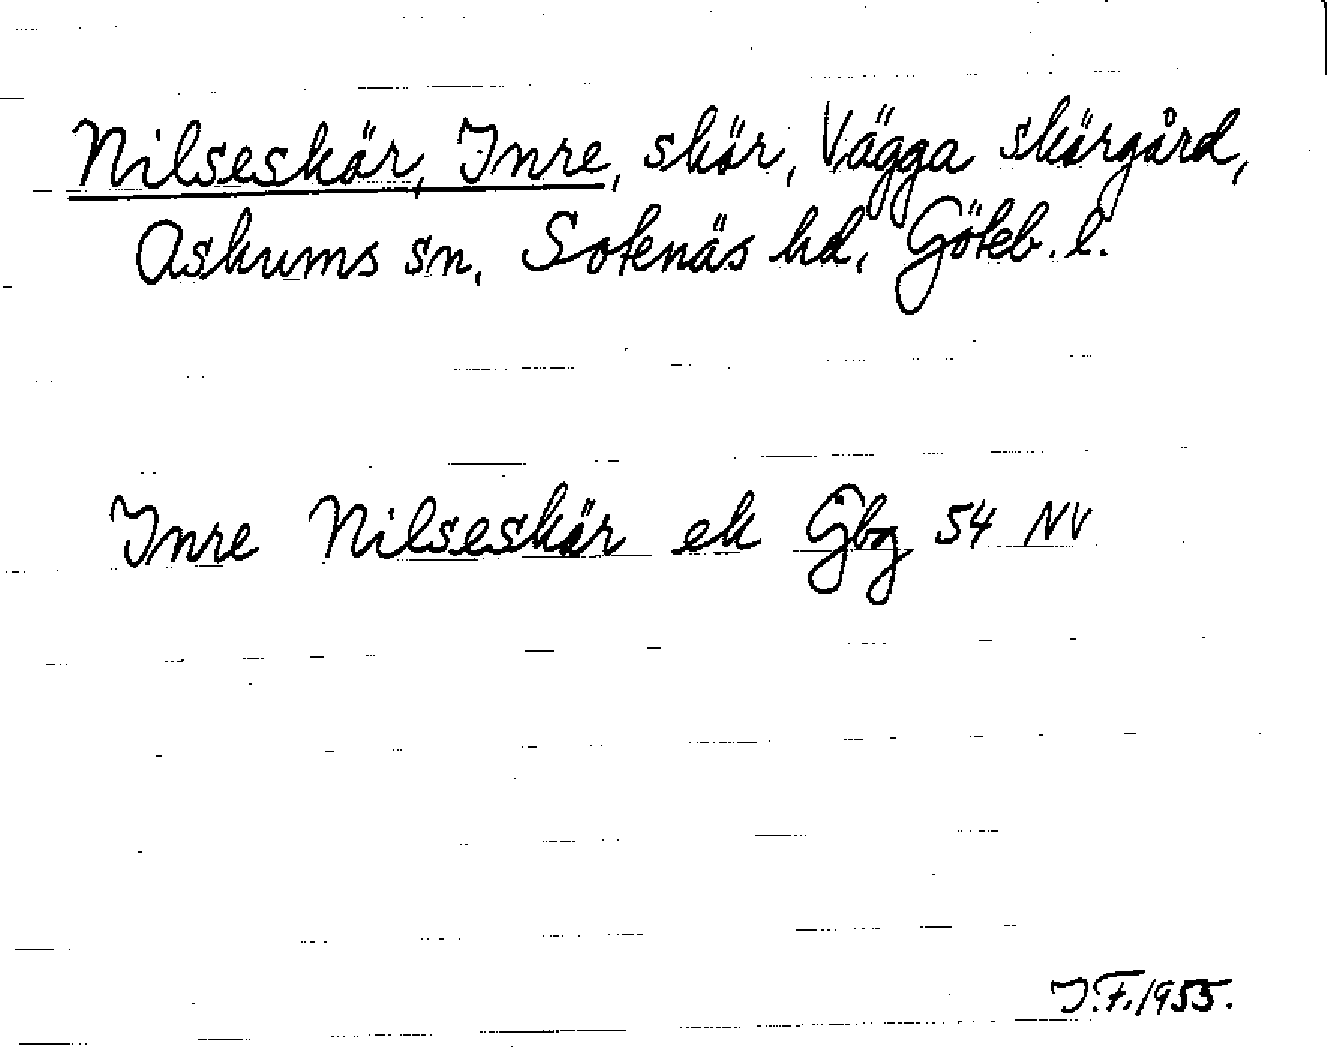 Nilseskär, Inre, skär, Vägga skärgård,
Askums sn, Sotenäs hd, Göteb. l.
Inre Nilseskär ek Gbg 54 NV
J.F. 1955.